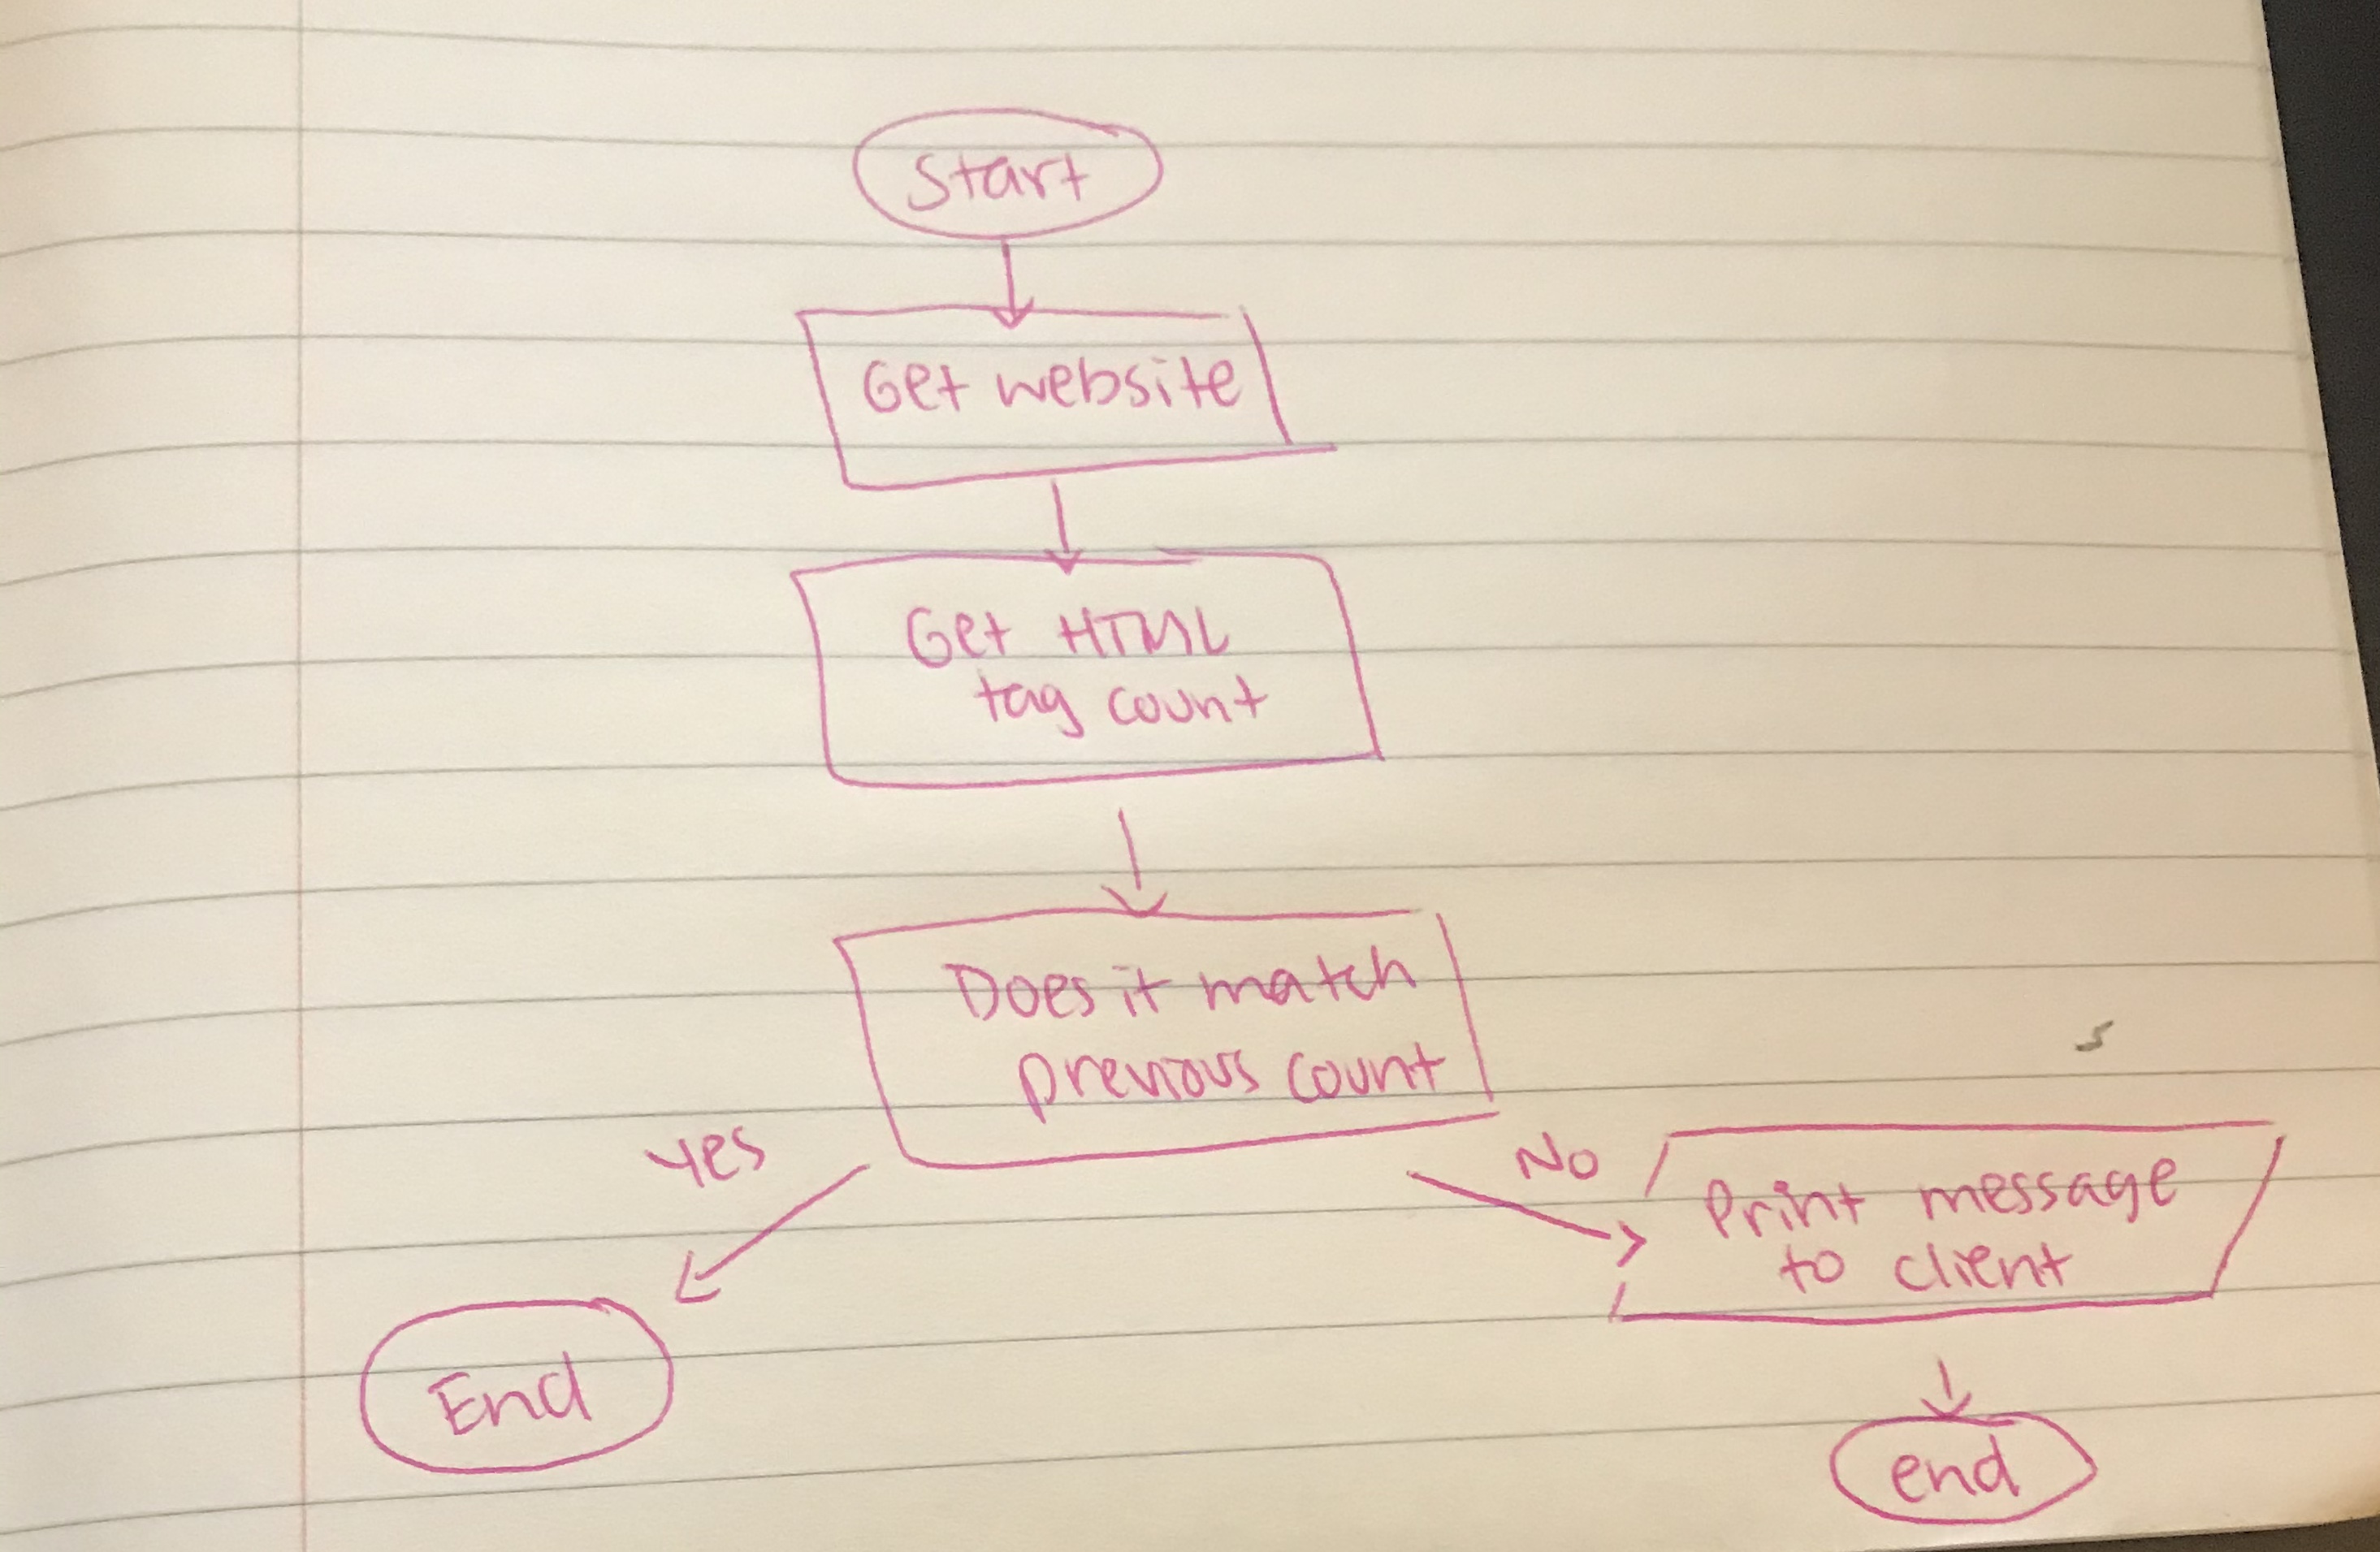 Start
Get website
Get HTML
tag count
Does it match
previous count
Yes
No
Print message
to client
End
end